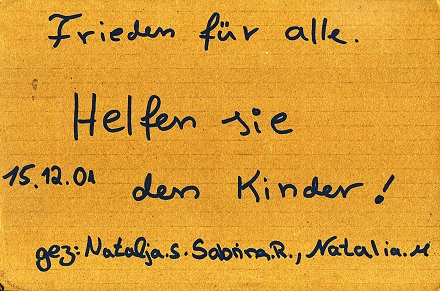 Frieden für alle.
Helfen sie
15.12.01 den Kinder!
gez: Natalja.S. Sabrina.R., Natalia.M